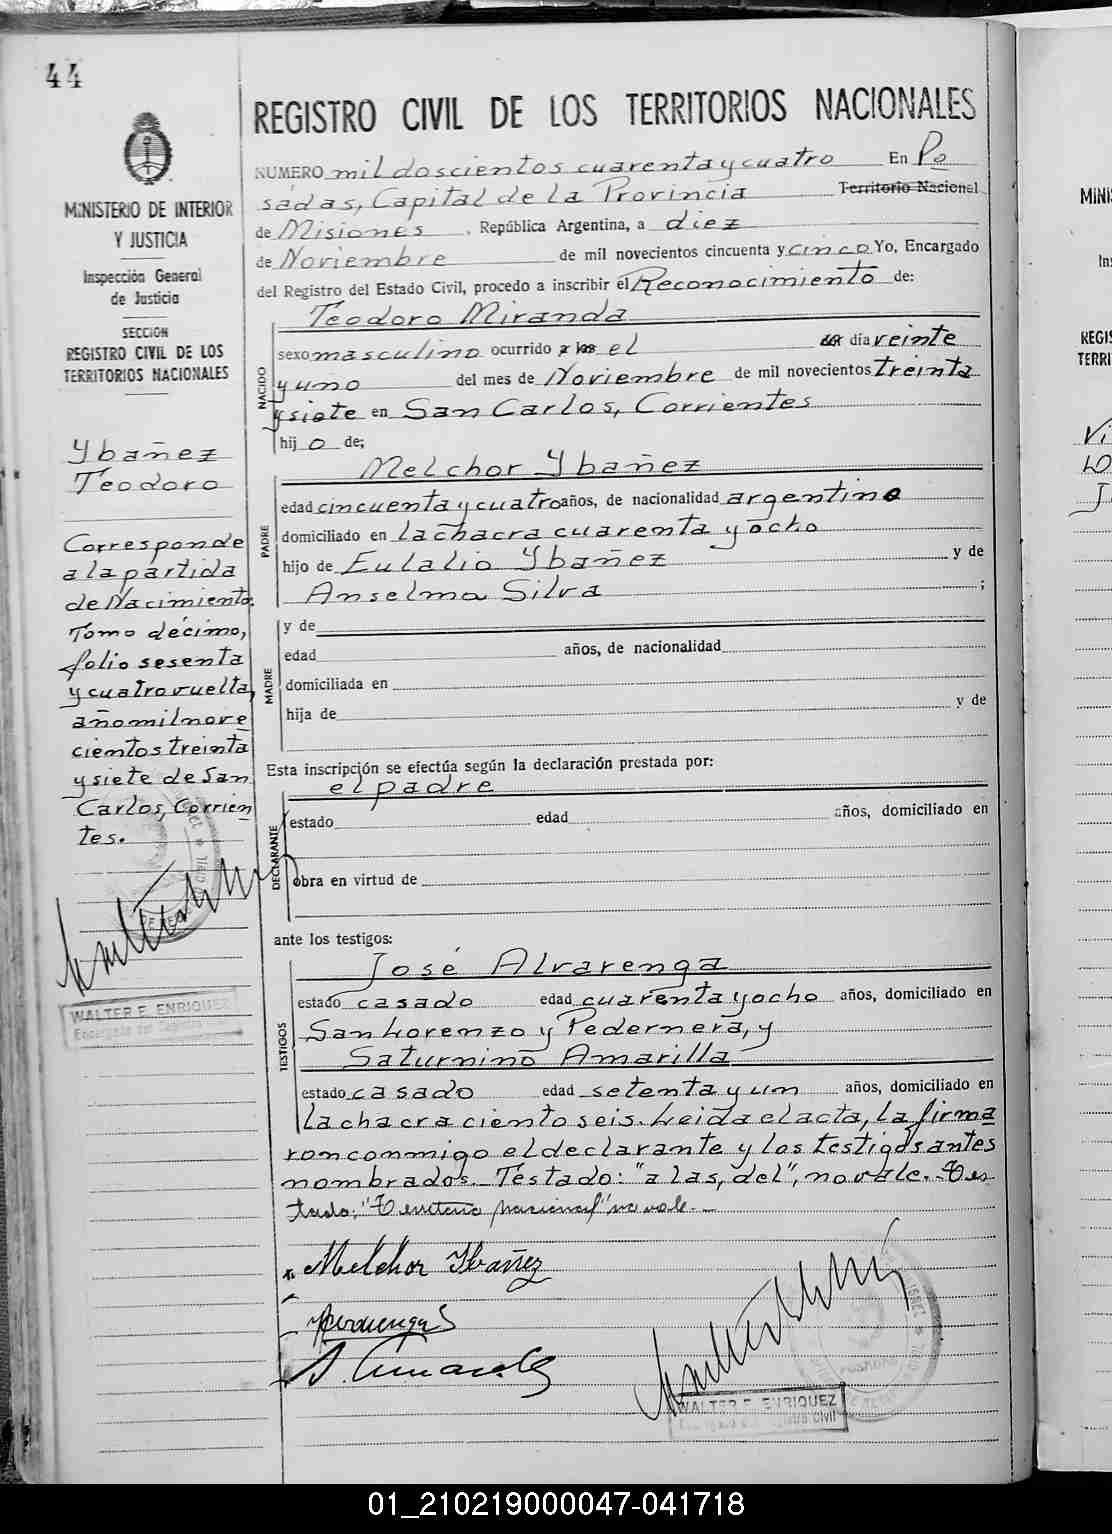 44
REGISTRO CIVIL DE LOS TERRITORIOS NACIONALES
MINISTERIO DE INTERIOR
Y JUSTICIA
Inspección General
de Justicia
SECCION
REGISTRO CIVIL DE LOS
TERRITORIOS NACIONALES
Ybañez
Teodoro
Corresponde
a la partida
de Nacimiento
Tomo décimo,
folio sesenta
y cuatro vuelta,
año mil nove
cientos treinta
y siete de San
Carlos, Corrien
tes.
WALTER E. ENRIQUEZ
Encargado del Registro
NUMERO mil doscientos cuarenta y cuatro En Po
sadas, Capital de la Provincia Territorio Nacional
de Misiones, República Argentina, a diez
de Noviembre de mil novecientos cincuenta y cinco Yo, Encargado
del Registro del Estado Civil, procedo a inscribir el Reconocimiento de:
Teodoro Miranda
NACIDO
sexo masculino ocurrido a las el del día veinte
y uno del mes de Noviembre de mil novecientos treinta
y siete en San Carlos, Corrientes
hijo de;
Melchor Ybañez
PADRE
edad cincuenta y cuatro años, de nacionalidad argentino
domiciliado en la chacra cuarenta y ocho
hijo de Eulalio Ybañez y de
Anselma Silva ;
MADRE
y de
edad años, de nacionalidad
domiciliada en
hija de y de
Esta inscripción se efectúa según la declaración prestada por:
el padre
DECLARANTE
estado edad años, domiciliado en
obra en virtud de
ante los testigos:
José Alvarenga
TESTIGOS
estado casado edad cuarenta y ocho años, domiciliado en
San Lorenzo y Pedernera, y
Saturnino Amarilla
estado casado edad setenta y un años, domiciliado en
la chacra ciento seis. Leida el acta, la firma
ron conmigo el declarante y los testigos antes
nombrados. Testado: "a las, del", no vale. Tes
tado: "Territorio Nacional" no vale.
Melchor Ybañez
WALTER E. ENRIQUEZ
POSADAS
MINIS
REGIS
TERRI
01_210219000047-041718